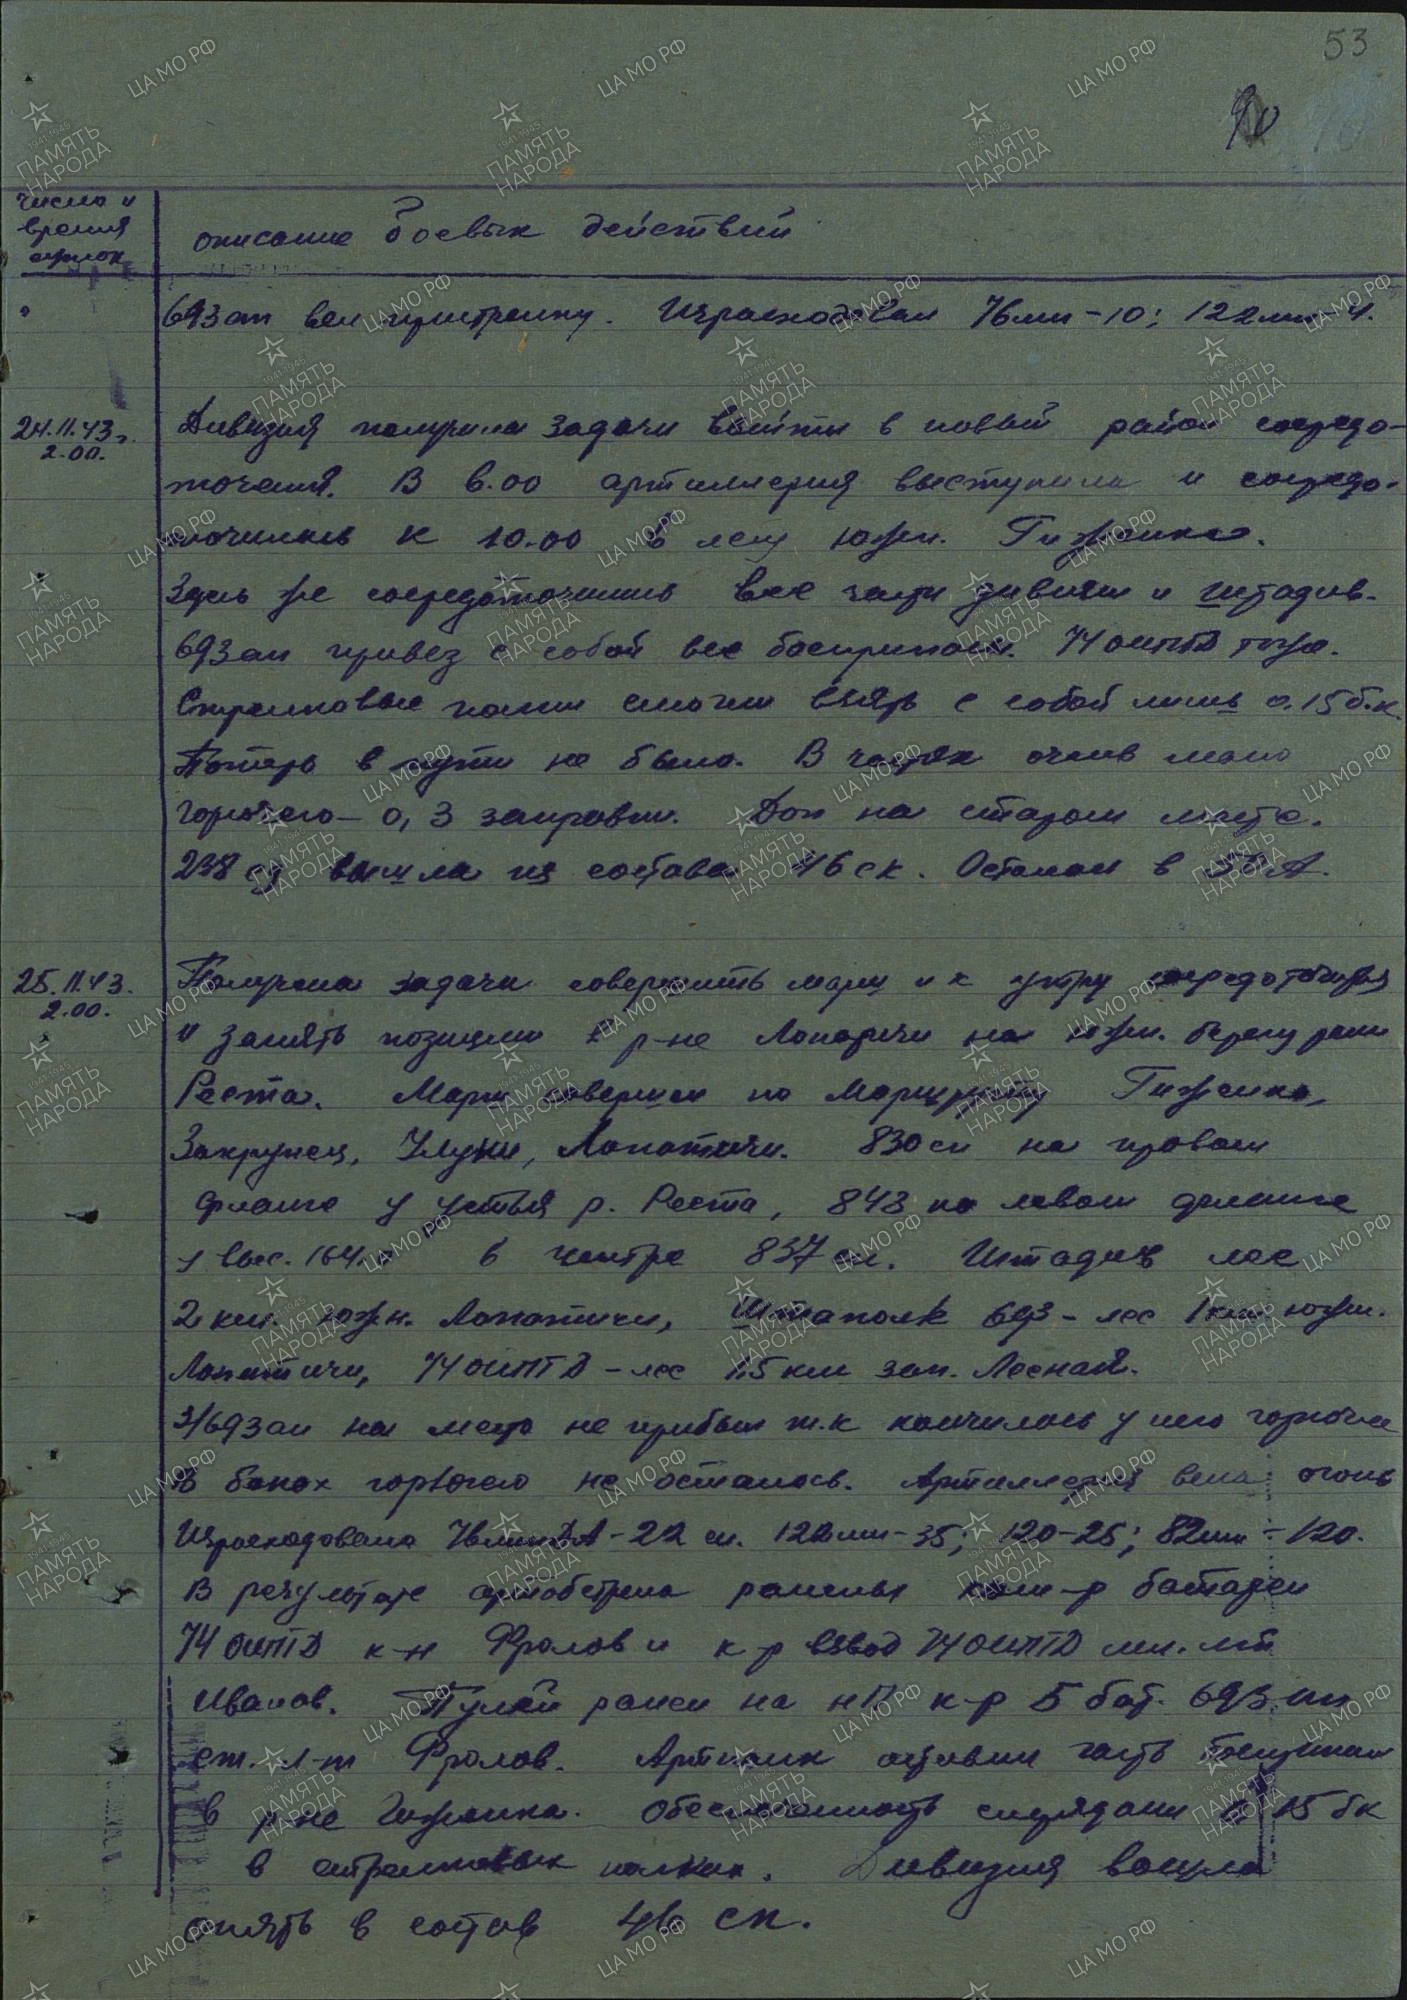 53
90
числа и
время
описание боевых действий
693 ап вел пристрелку. Израсходовал 76 мм - 10; 122 мм - 4.
24.11.43 г.
2.00.
Дивизия получила задачи выйти в новый район сосредо-
точения. В 6.00 артиллерия выступила и сосредо-
точилась к 10.00 в лесу южн. Гиженка.
Здесь же сосредоточились все части дивизии и штадив.
693 ап привез с собой все боеприпасы. 74 оиптд тоже.
Стрелковые полки смогли взять с собой лишь 0.15 б.к.
Потерь в пути не было. В частях очень мало
горючего - 0,3 заправки. Доп на старом месте.
238 сд вышла из состава 46 ск. Остался в 50 А.
25.11.43.
2.00.
Получена задача совершить марш и к утру сосредоточиться
и занять позиции в р-не Лопатичи на южн. берегу реки
Реста. Марш совершен по маршруту Гиженка,
Закрупец, Улуки, Лопатичи. 830 сп на правом
фланге у устья р. Реста, 843 на левом фланге
у выс. 164. в центре 837 сп. Штадив лес
2 км. южн. Лопатичи, Штаполк 693 - лес 1 км. южн.
Лопатичи, 74 оиптд - лес 1.5 км зап. Лесная.
3/693 ап на место не прибыл т.к кончилось у него горючее
В баках горючего не осталось. Артиллерия вела огонь
Израсходовано 76 мм ДА - 22 сн. 122 мм - 35; 120 - 25; 82 мм - 120.
В результате артобстрела ранены ком-р батареи
74 оиптд к-н Фролов и к-р взвод 74 оиптд мл. л-т
Иванов. Пулей ранен на НП к-р 5 бат. 693 ап
ст. л-т Фролов. Артполк оставил часть боеприпасов
в р-не Гиженка. Обеспеченность снарядами 0,15 бк
в стрелковых полках. Дивизия вошла
опять в состав 46 ск.
ЦА МО РФ
1941-1945
ПАМЯТЬ
НАРОДА